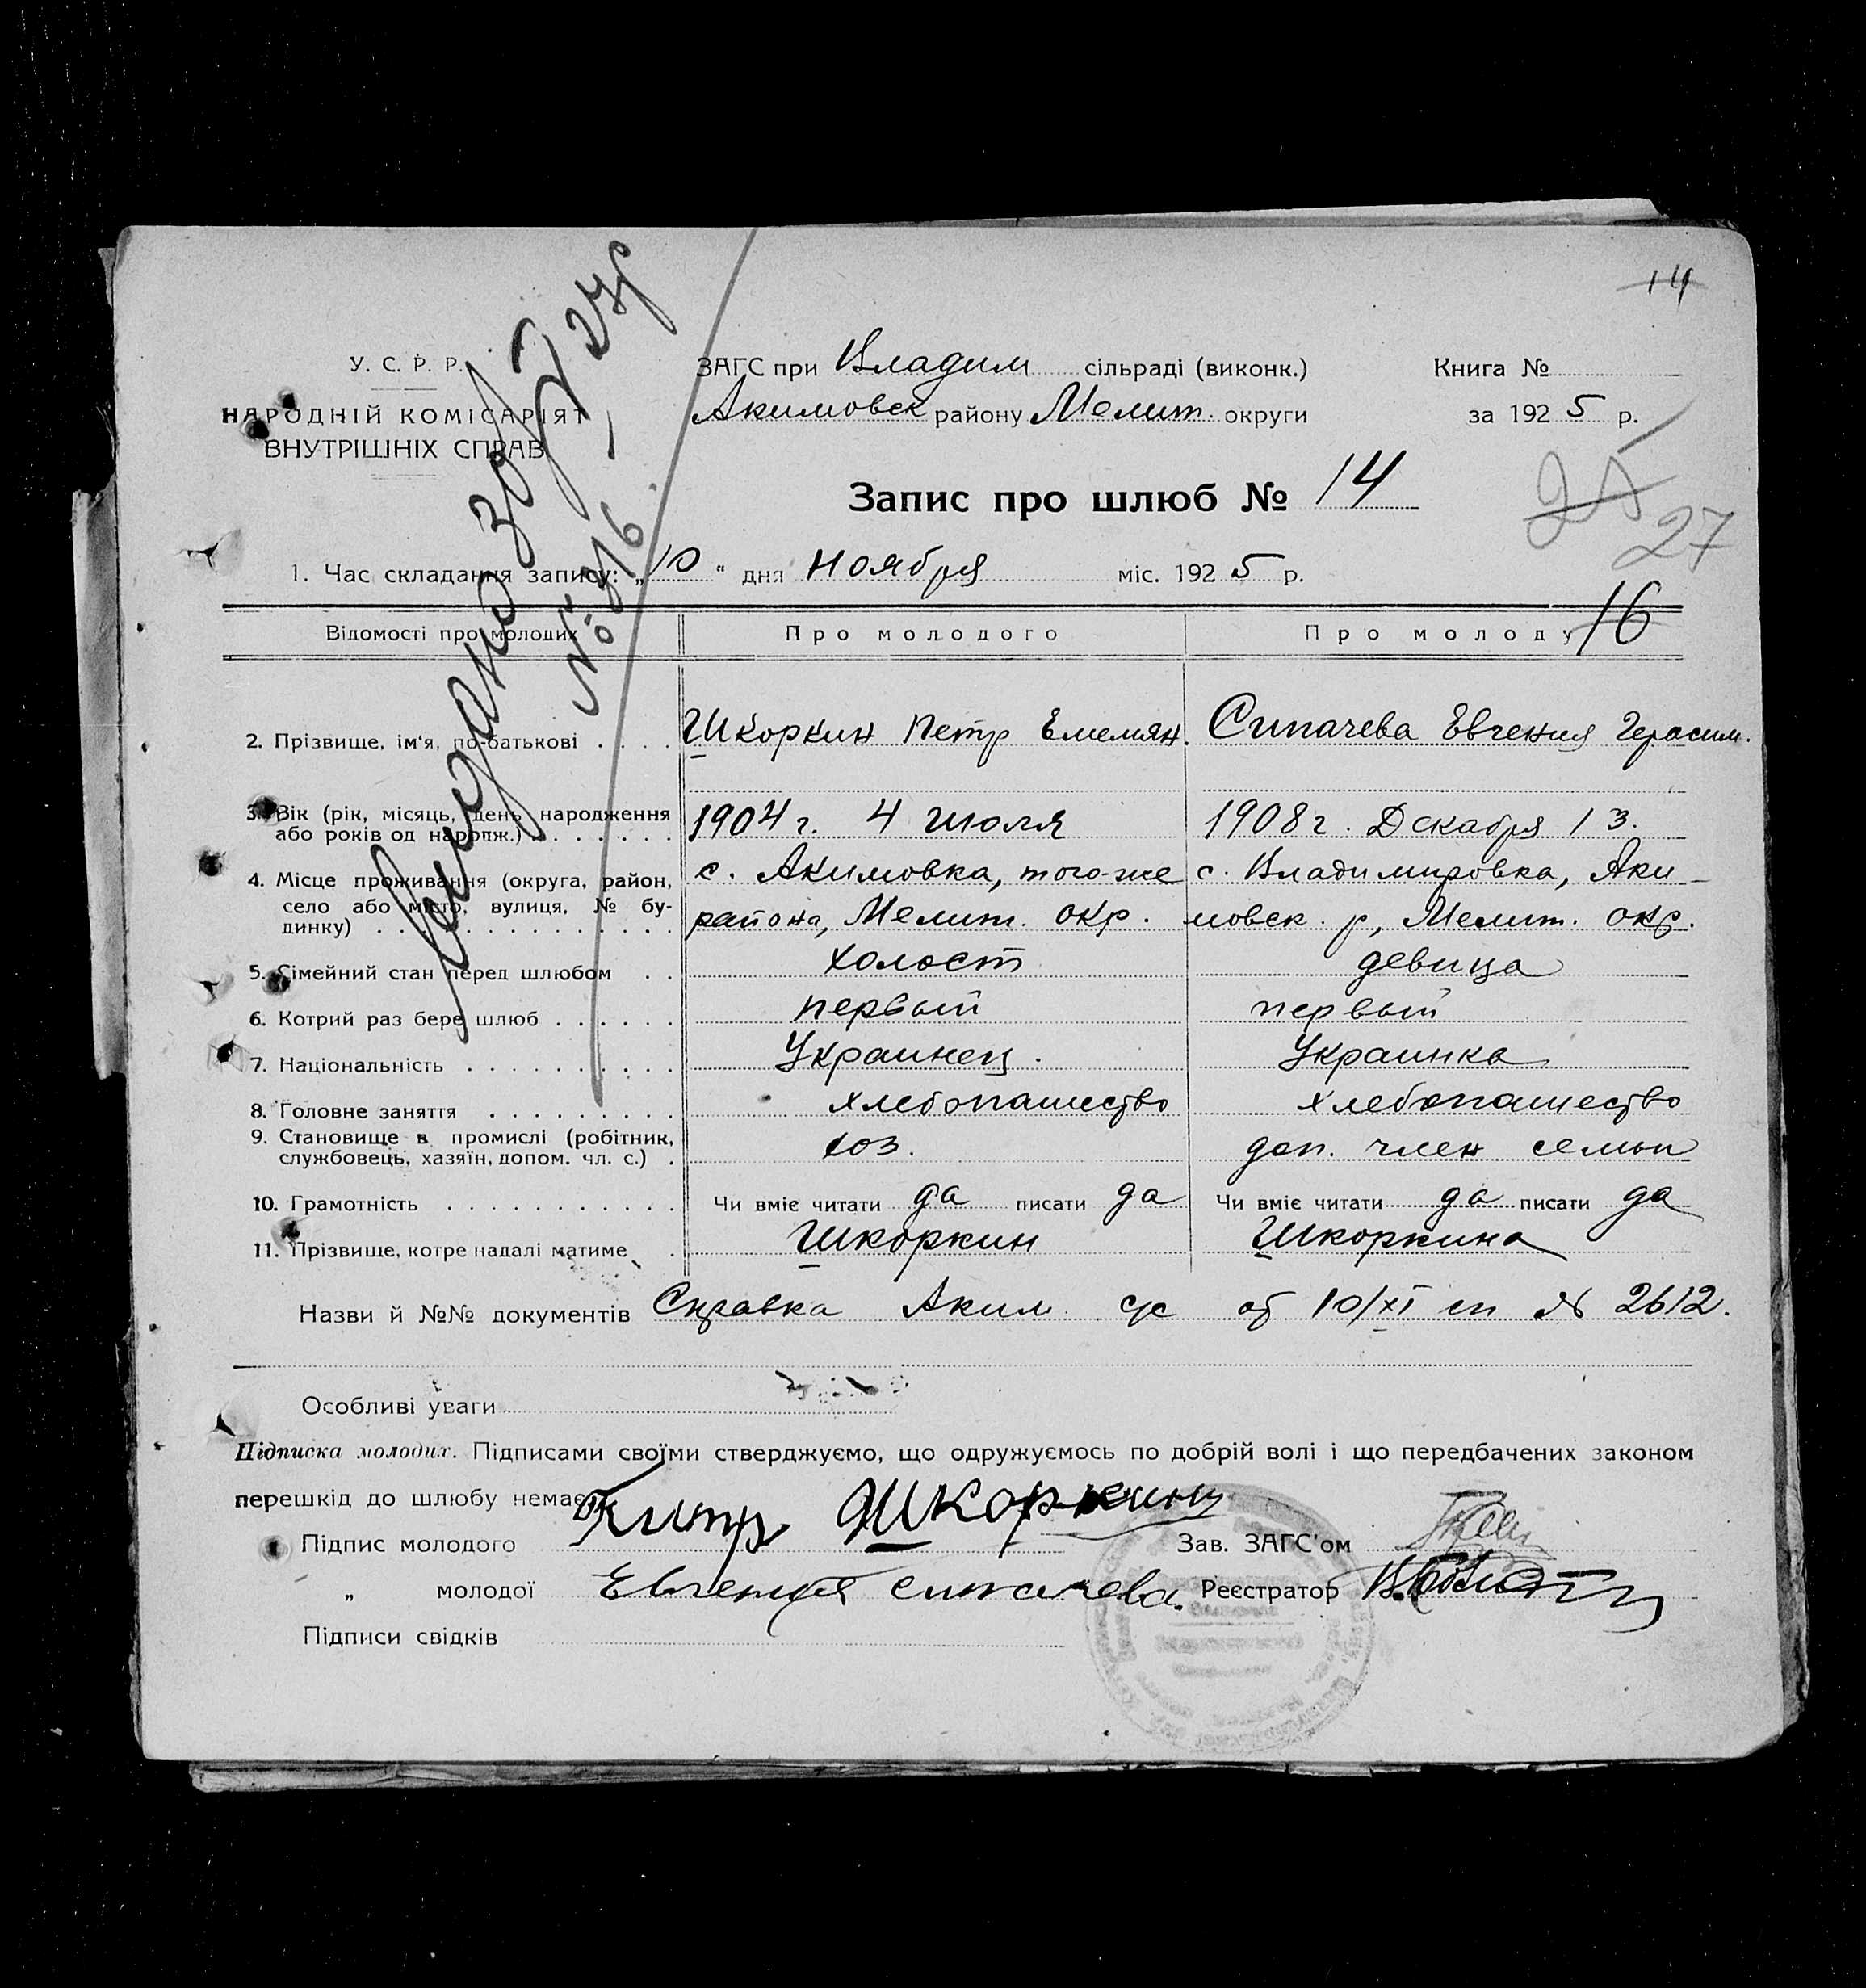 14
У. С. Р. Р.
НАРОДНІЙ КОМІСАРІЯТ
ВНУТРІШНІХ СПРАВ
ЗАГС при Владим сільраді (виконк.)
Акимовск району Мелит. округи
Книга №
за 1925 р.
Запис про шлюб № 14
25
27
1. Час складання запису: „10“ дня ноября міс. 1925 р.
16
№ 916
Відомості про молодих Про молодого Про молоду
2. Прізвище, ім'я, по-батькові . . . . Шкоркин Петр Емельян. Сипачева Евгения Герасим.
3. Вік (рік, місяць, день народження 1904 г. 4 июля 1908 г. Декабря 13.
або років од народж.) . . . . . . .
4. Місце проживання (округа, район, с. Акимовка, того-же с. Владимировка, Аки-
село або місто, вулиця, № бу- района, Мелит. окр. мовск. р, Мелит. окр.
динку) . . . . . . . . . . . . . . . .
5. Сімейний стан перед шлюбом . . холост девица
6. Котрий раз бере шлюб . . . . . . первый первый
7. Національність . . . . . . . . . . Украинец. Украинка
8. Головне заняття . . . . . . . . . хлебопашество хлебопашество
9. Становище в промислі (робітник, хоз. доп. член семьи
службовець, хазяїн, допом. чл. с.) .
10. Грамотність . . . . . . . . . . . Чи вміє читати да писати да Чи вміє читати да писати да
11. Прізвище, котре надалі матиме . Шкоркин Шкоркина
Назви й №№ документів Справка Аким с/с от 10/XI сп № 2612.
Особливі уваги
Підписка молодих. Підписами своїми стверджуємо, що одружуємось по добрій волі і що передбачених законом
перешкід до шлюбу немає.
Підпис молодого Шкоркин Зав. ЗАГС'ом
„ молодої Евгения сипачева. Реєстратор
Підписи свідків